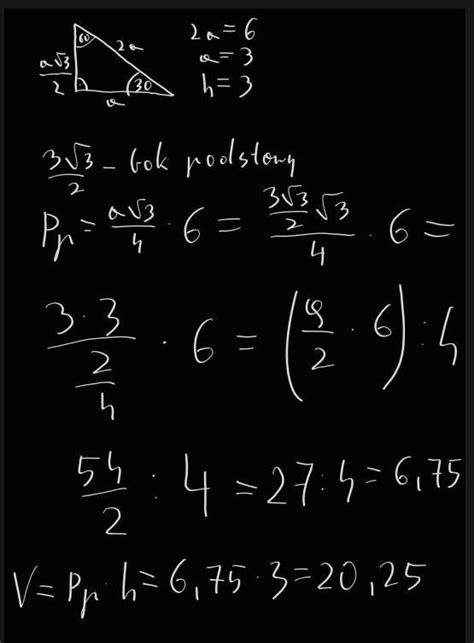 60 2a 2a=6
a√3/2 a=3
30 h=3
a
3√3/2 - bok podstawy
Pp = a√3/4 · 6 = (3√3/2 √3)/4 · 6 =
(3·3/2)/4 · 6 = (9/2 · 6) : 4
54/2 : 4 = 27 : 4 = 6,75
V = Pp · h = 6,75 · 3 = 20,25